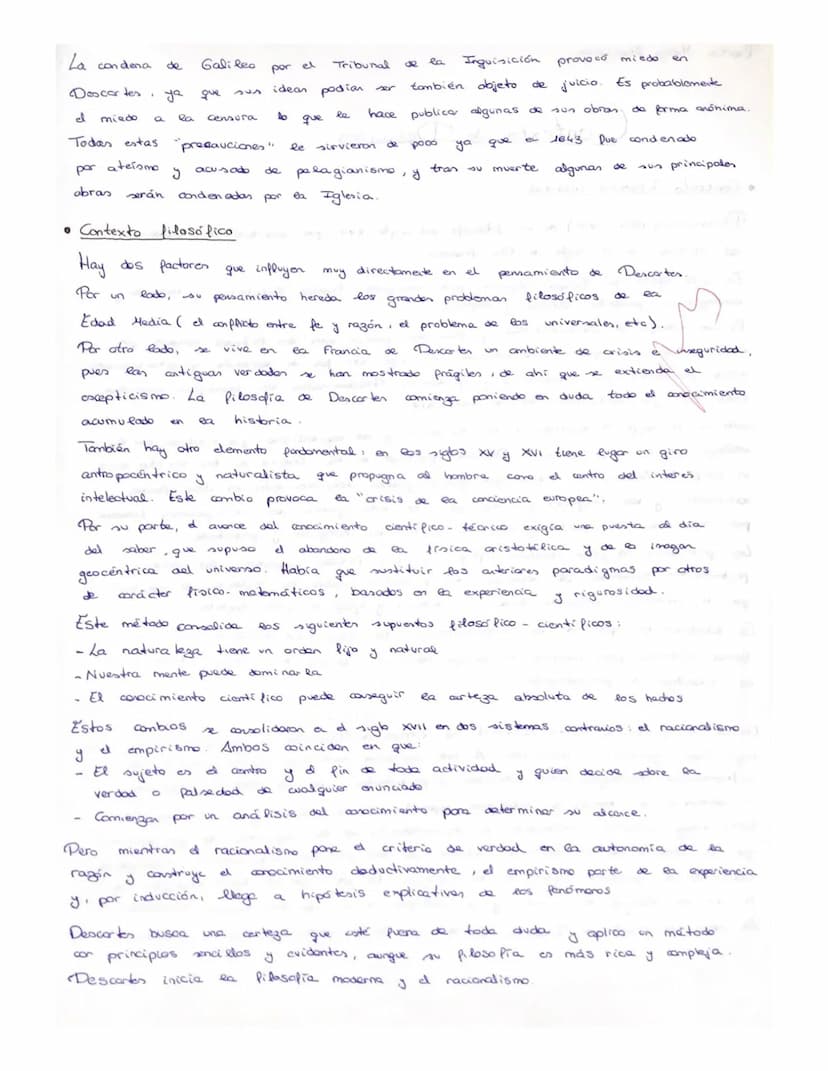 La condena de Galileo por el Tribunal de la Inquisición provocó miedo en
Descartes, ya que sus ideas podían ser también objeto de juicio. Es probablemente
el miedo a la censura lo que le hace publicar algunas de sus obras de forma anónima.
Todas estas "precauciones" le sirvieron de poco ya que en 1643 fue condenado
por ateísmo y acusado de pelagianismo, y tras su muerte algunas de sus principales
obras serán condenadas por la Iglesia.
• Contexto filosófico
Hay dos factores que influyen muy directamente en el pensamiento de Descartes.
Por un lado, su pensamiento hereda los grandes problemas filosóficos de la
Edad Media (el conflicto entre fe y razón, el problema de los universales, etc).
Por otro lado, se vive en la Francia de Descartes un ambiente de crisis e inseguridad,
pues las antiguas verdades se han mostrado frágiles, de ahí que se extienda el
escepticismo. La filosofía de Descartes comienza poniendo en duda todo el conocimiento
acumulado en la historia.
También hay otro elemento fundamental: en los siglos XV y XVI tiene lugar un giro
antropocéntrico y naturalista que propugna al hombre como el centro del interés
intelectual. Este cambio provoca la "crisis de la conciencia europea".
Por su parte, el avance del conocimiento científico-técnico exigía una puesta al día
del saber, que supuso el abandono de la física aristotélica y de la imagen
geocéntrica del universo. Había que sustituir los anteriores paradigmas por otros
de carácter físico-matemáticos, basados en la experiencia y rigurosidad.
Este método consolida los siguientes supuestos filosófico-científicos:
- La naturaleza tiene un orden fijo y natural
- Nuestra mente puede dominarla
- El conocimiento científico puede conseguir la certeza absoluta de los hechos
Estos cambios se consolidaron en el siglo XVII en dos sistemas contrarios: el racionalismo
y el empirismo. Ambos coinciden en que:
- El sujeto es el centro y el fin de toda actividad y quien decide sobre la
verdad o falsedad de cualquier enunciado
- Comienzan por un análisis del conocimiento para determinar su alcance.
Pero mientras el racionalismo pone el criterio de verdad en la autonomía de la
razón y construye el conocimiento deductivamente, el empirismo parte de la experiencia
y, por inducción, llega a hipótesis explicativas de los fenómenos
Descartes busca una certeza que esté fuera de toda duda y aplica un método
con principios sencillos y evidentes, aunque su filosofía es más rica y compleja.
Descartes inicia la filosofía moderna y el racionalismo.